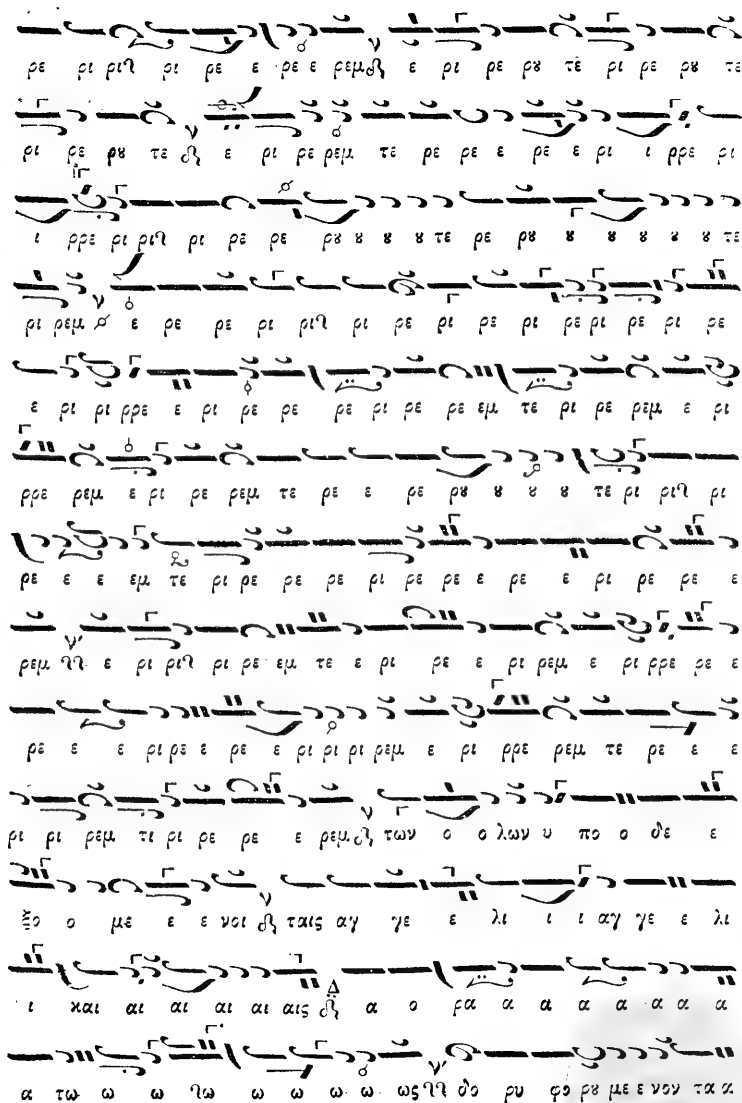 ρε ρι ριϞ ρι ρε ε ρε ε ρεμ ε ρι ρε ρȣ τέ ρι ρε ρȣ τε
ρι ρε ρȣ τε ε ρι ρε ρεμ τε ρε ρε ε ρε ε ρι ι ρρε ρι
ι ρρε ρι ριϞ ρι ρε ρε ρȣ ȣ ȣ ȣ τε ρε ρȣ ȣ ȣ ȣ ȣ ȣ τε
ρι ρεμ ε ρε ρε ρε ρι ριϞ ρι ρε ρι ρε ρι ρε ρι ρε ρι ρε
ε ρι ρι ρρε ε ρι ρε ρε ρε ρι ρε ρε εμ τε ρι ρε ρεμ ε ρι
ρρε ρεμ ε ρι ρε ρεμ τε ρε ε ρε ρȣ ȣ ȣ ȣ τε ρι ριϞ ρι
ρε ε ε εμ τε ρι ρε ρε ρε ρι ρε ρε ε ρε ε ρι ρε ρε ε
ρεμ ε ρι ριϞ ρι ρε εμ τε ε ρι ρε ε ρι ρεμ ε ρι ρρε ρε ε
ρε ε ε ρι ρε ε ρε ε ρι ρι ρι ρεμ ε ρι ρρε ρεμ τε ρε ε ε
ρι ρι ρεμ τι ρι ρε ρε ε ρεμ των ο ο λων υ πο ο δε ε
ξο ο με ε ε νοι ταις αγ γε ε λι ι ι αγ γε ε λι
ι και αι αι αι αι αις α ο ρα α α α α α α α
α τω ω ω Ϟω ω ω ω ω ως δο ρυ φο ρȣ με ε νον τα α